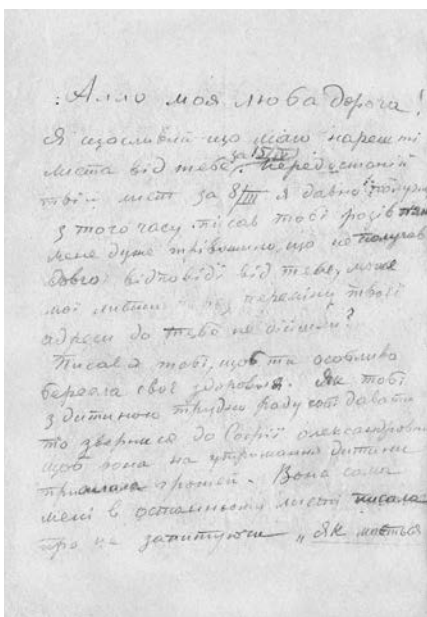 Алло моя люба дорога!
Я щасливий що маю нарешті
листа від тебе за 15/IV. Передостаній
твій лист за 8/III я давно получив
з того часу писав тобі разів
мене дуже трівожило, що не получав
довго відповіді від тебе, може
мої листи через переміну твоєї
адреси до тебе не дійшли?
Писав я тобі, щоб ти особливо
берегла своє здоровья. Як тобі
з дитиною трудно раду собі давати
то звернися до Софії Олександровни
щоб вона на утримання дитини
присилала грошей. Вона сама
мені в останньому листі писала
про це запитуючи „Як мається